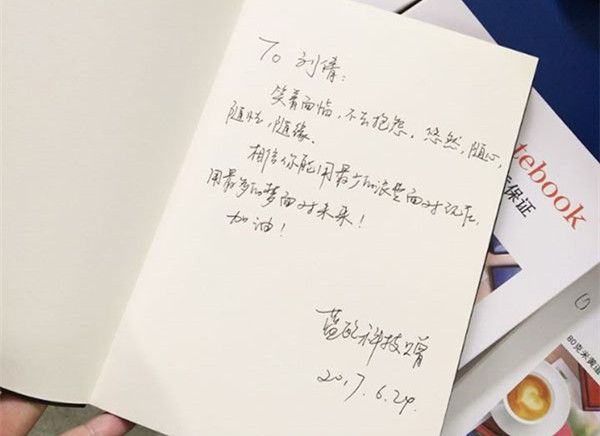 To 刘倩:
笑着面临,不去抱怨。悠然,随心,
随性,随缘。
相信你能用最少的浪费面对现在,
用最多的梦面对未来!
加油!
蓝鸥科技赠
2017.6.24.
tebook
保证
80克米黄道